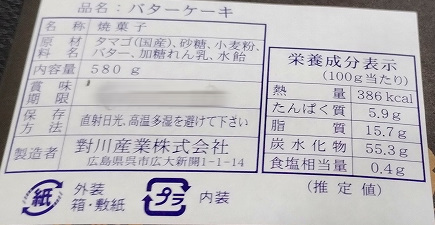 品名：バターケーキ
名称 焼菓子
原材料名 タマゴ(国産)、砂糖、小麦粉、
バター、加糖れん乳、水飴
内容量 580g
賞味期限
保存方法 直射日光、高温多湿を避けて下さい
製造者 對川産業株式会社
広島県呉市広大新開1-1-14
紙 外装
箱・敷紙
プラ 内装
栄養成分表示
(100g当たり)
熱量 386kcal
たんぱく質 5.9g
脂質 15.7g
炭水化物 55.3g
食塩相当量 0.4g
(推定値)